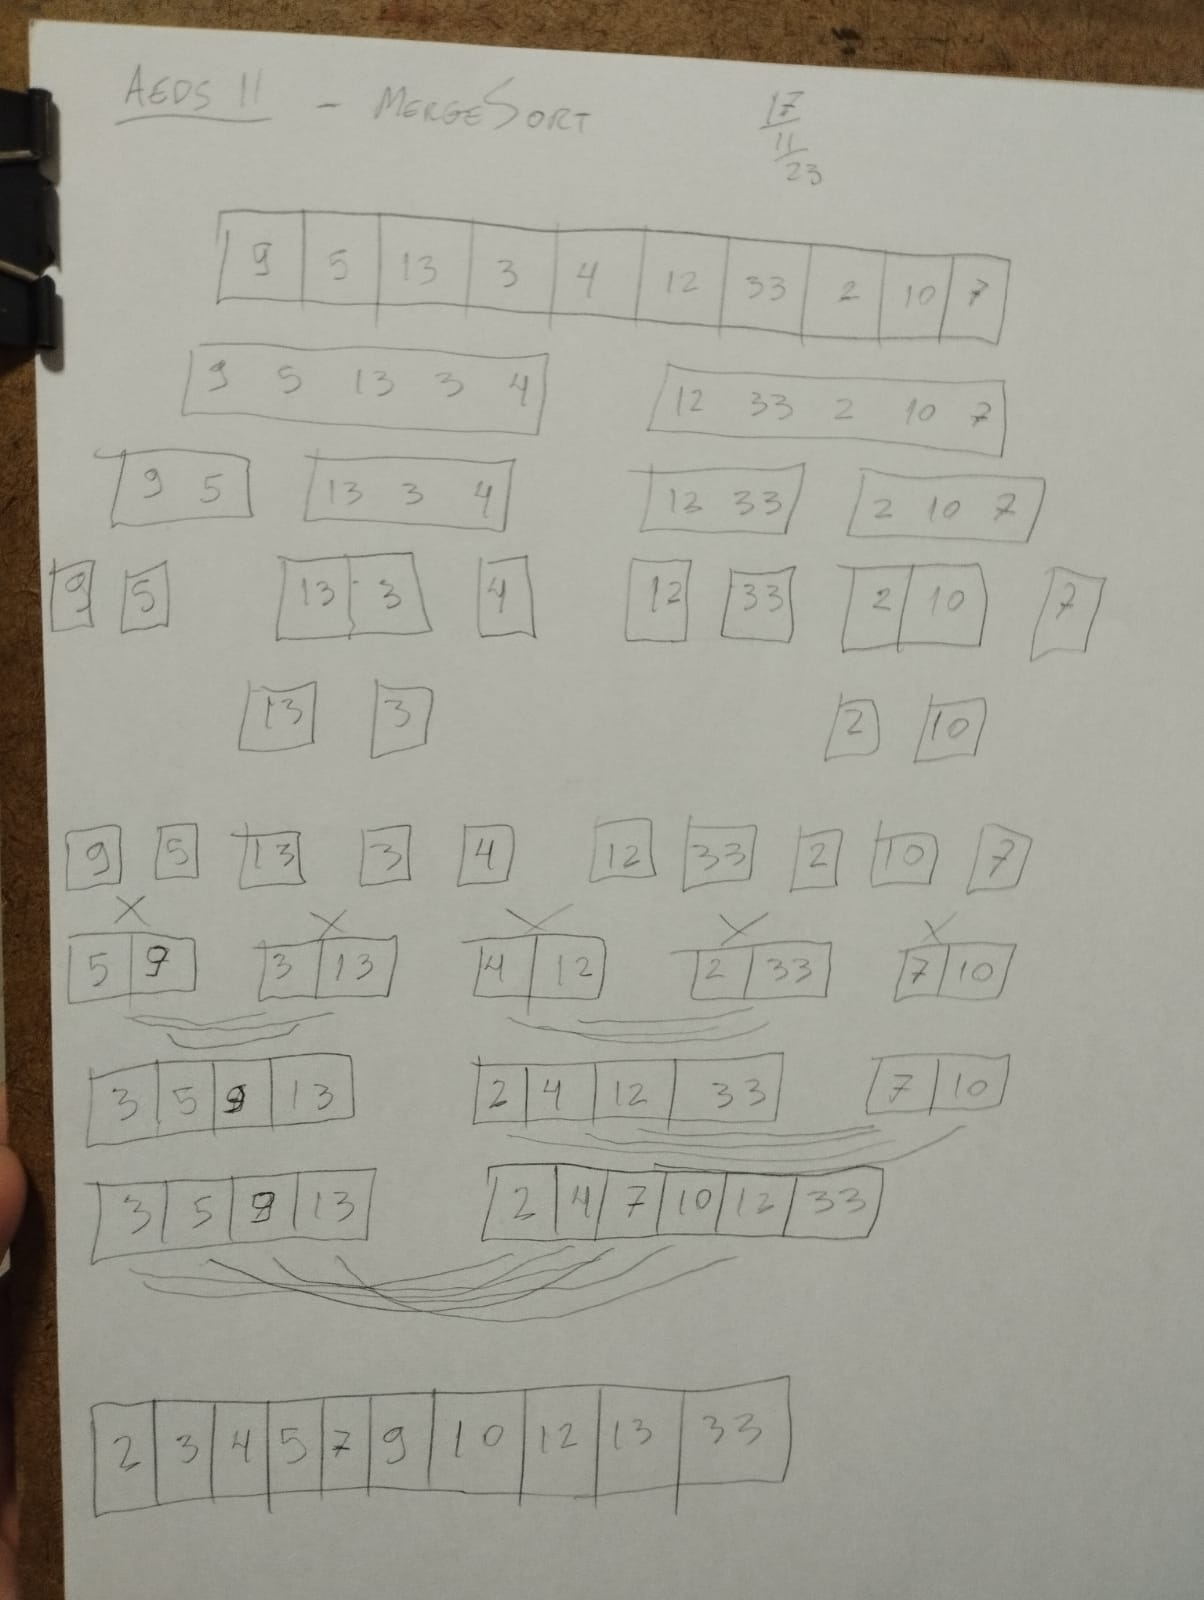 AEDS II - MERGESORT 17/11/23
9 5 13 3 4 12 33 2 10 7
9 5 13 3 4 12 33 2 10 7
9 5 13 3 4 12 33 2 10 7
9 5 13 3 4 12 33 2 10 7
13 3 2 10
9 5 13 3 4 12 33 2 10 7
5 9 3 13 4 12 2 33 7 10
3 5 9 13 2 4 12 33 7 10
3 5 9 13 2 4 7 10 12 33
2 3 4 5 7 9 10 12 13 33